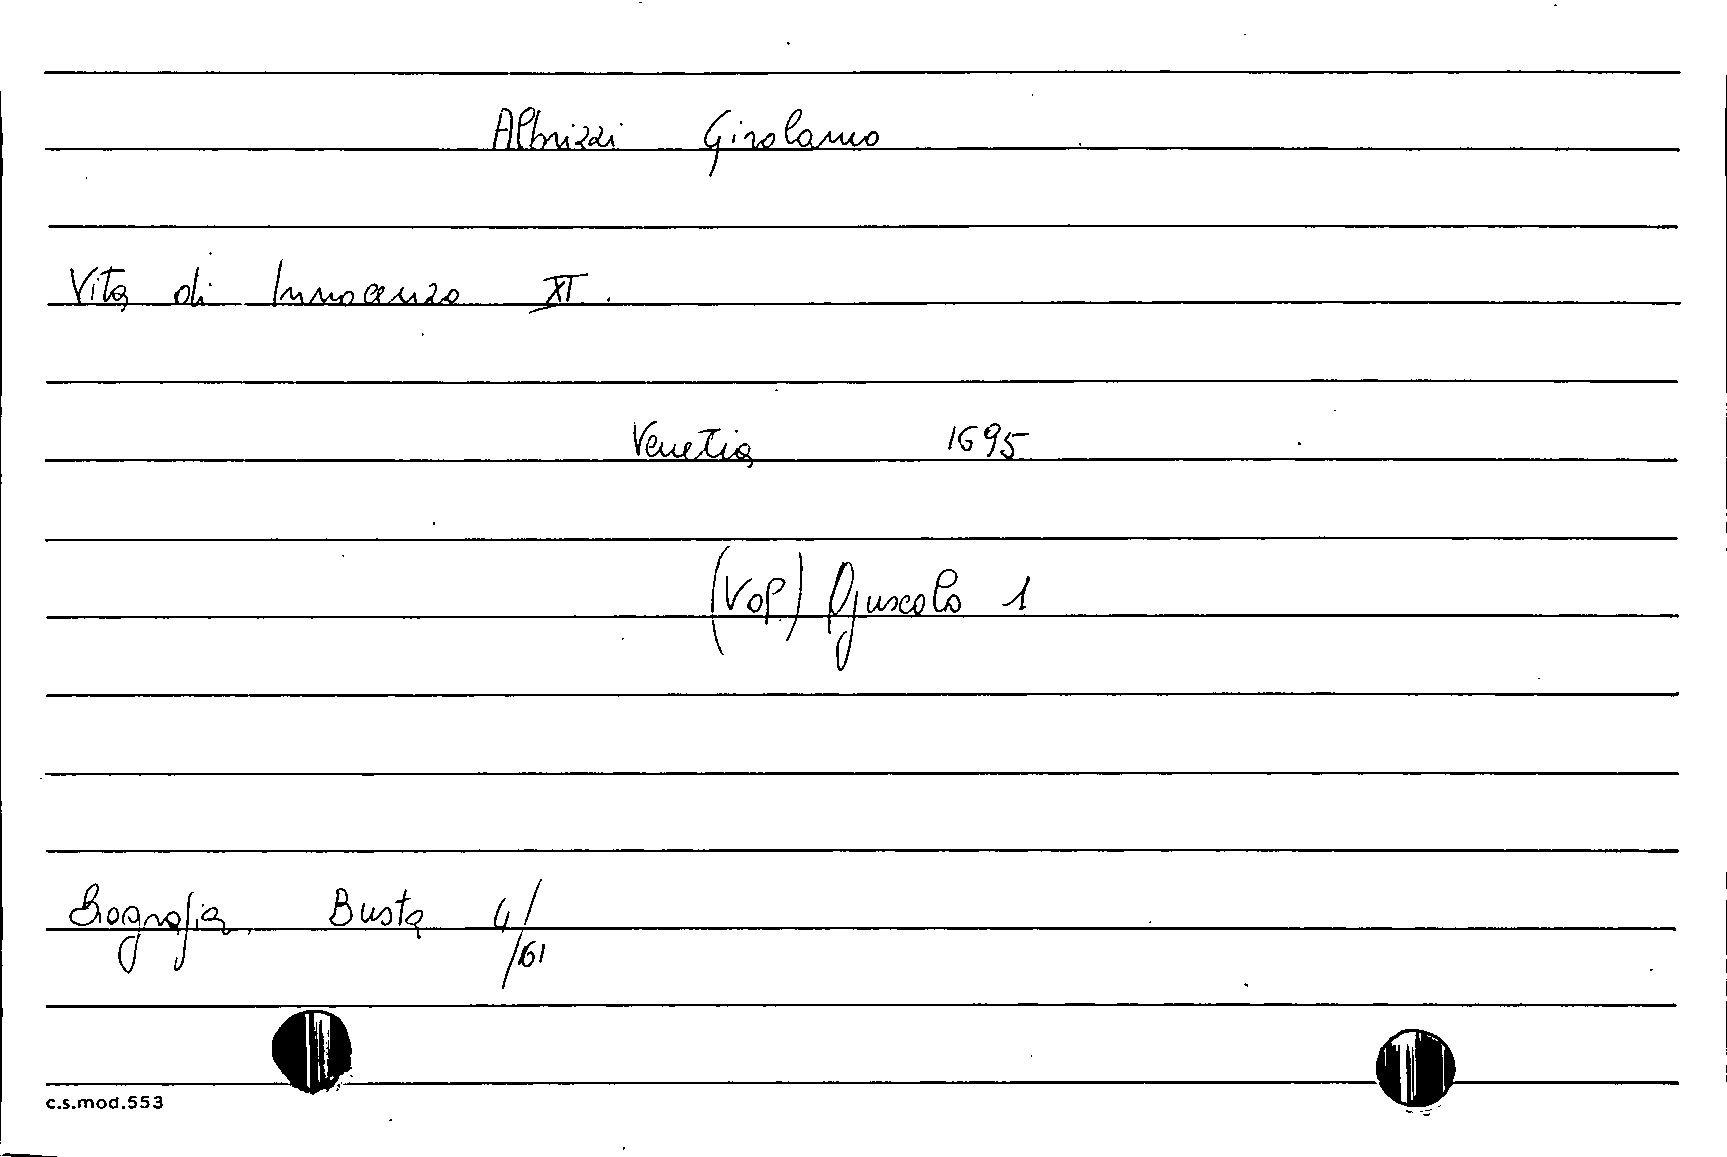 Albrizzi Girolamo
Vita di Innocenzo XI.
Venetia 1695
(Vop.) Opuscolo 1
Biografia Busta 4/161
c.s.mod.553